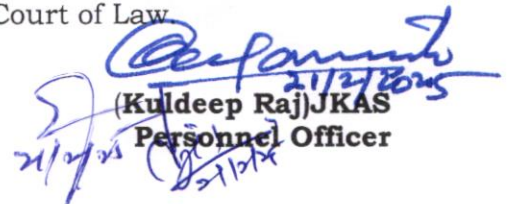 Court of Law.
21/2/2025
(Kuldeep Raj)JKAS
Personnel Officer
21/2/25
21/2/25